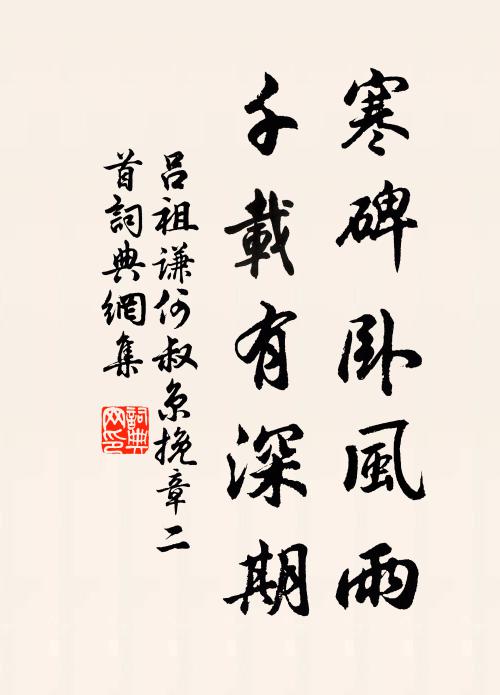 寒碑卧風雨
千載有深期
吕祖謙何叔京挽章二
首詞典網集
詞典網印